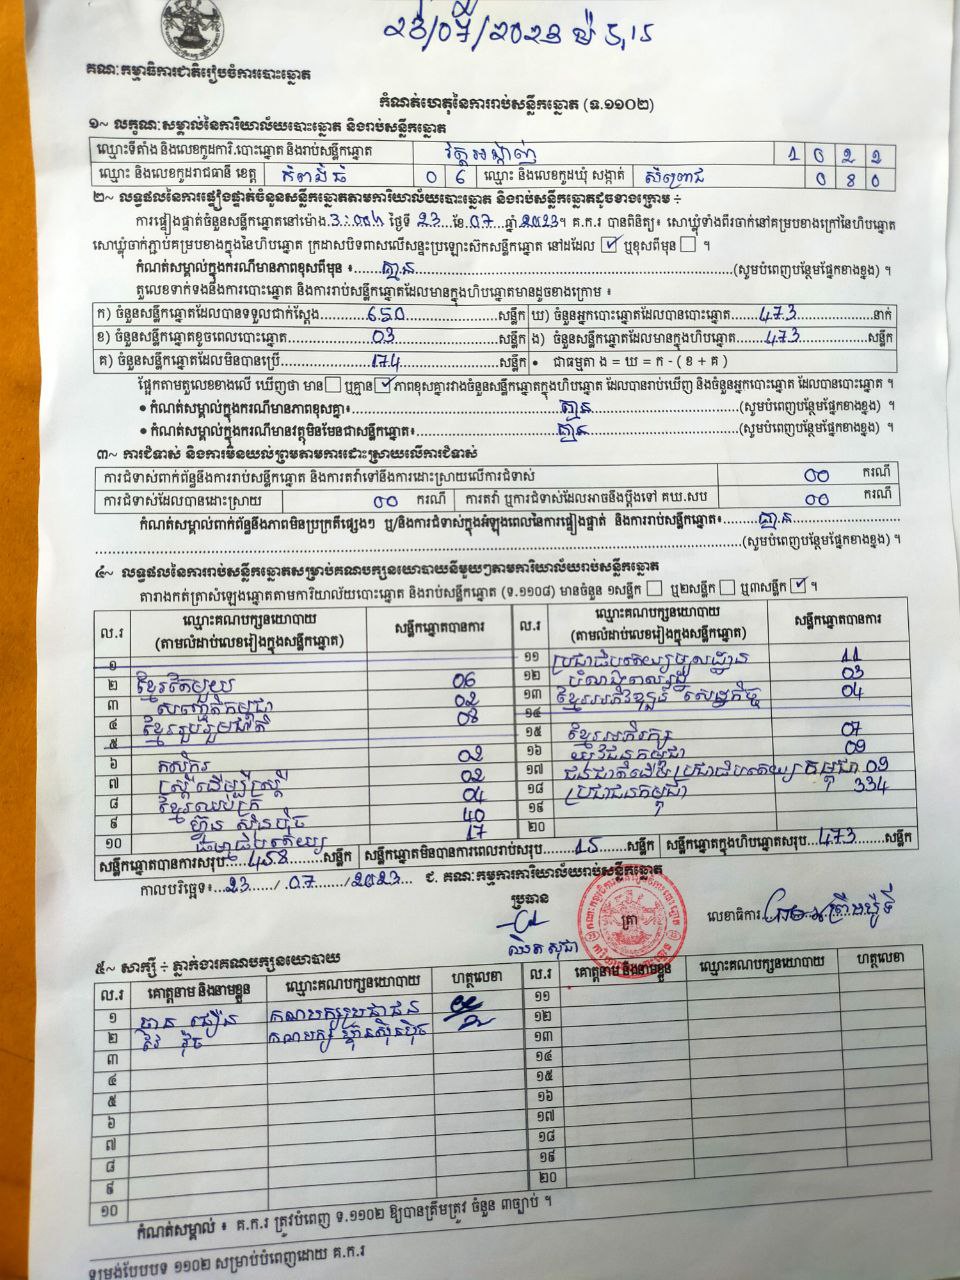 គណៈកម្មាធិការជាតិរៀបចំការបោះឆ្នោត
កំណត់ហេតុនៃការរាប់សន្លឹកឆ្នោត (ទ.១១០២)
១~ លក្ខណៈសម្គាល់នៃការិយាល័យបោះឆ្នោត និងរាប់សន្លឹកឆ្នោត
ឈ្មោះទីតាំង និងលេខកូដការិ.បោះឆ្នោត និងរាប់សន្លឹកឆ្នោត
ឈ្មោះ និងលេខកូដរាជធានី ខេត្ត កំពង់ធំ 0 6 ឈ្មោះ និងលេខកូដឃុំ សង្កាត់ 0 8 0
២~ លទ្ធផលនៃការផ្ទៀងផ្ទាត់ចំនួនសន្លឹកឆ្នោតតាមការិយាល័យបោះឆ្នោត និងរាប់សន្លឹកឆ្នោតដូចខាងក្រោម ÷
ការផ្ទៀងផ្ទាត់ចំនួនសន្លឹកឆ្នោតនៅម៉ោង ថ្ងៃទី 23 ខែ 07 ឆ្នាំ 2023។ គ.ក.រ បានពិនិត្យ៖ សោឃ្លុំទាំងពីរចាក់នៅគម្របខាងក្រៅនៃហិបឆ្នោត
សោឃ្លុំចាក់ភ្ជាប់គម្របខាងក្នុងនៃហិបឆ្នោត ក្រដាសបិទពាសលើសន្ទះប្រឡោះស៊កសន្លឹកឆ្នោត នៅដដែល ☑ ឬខុសពីមុន ☐ ។
កំណត់សម្គាល់ក្នុងករណីមានភាពខុសពីមុន ៖ គ្មាន (សូមបំពេញបន្ថែមផ្នែកខាងខ្នង) ។
តួលេខទាក់ទងនឹងការបោះឆ្នោត និងការរាប់សន្លឹកឆ្នោតដែលមានក្នុងហិបឆ្នោតមានដូចខាងក្រោម ៖
ក) ចំនួនសន្លឹកឆ្នោតដែលបានទទួលជាក់ស្តែង 650 សន្លឹក ឃ) ចំនួនអ្នកបោះឆ្នោតដែលបានបោះឆ្នោត 473 នាក់
ខ) ចំនួនសន្លឹកឆ្នោតខូចពេលបោះឆ្នោត 03 សន្លឹក ង) ចំនួនសន្លឹកឆ្នោតដែលមានក្នុងហិបឆ្នោត 473 សន្លឹក
គ) ចំនួនសន្លឹកឆ្នោតដែលមិនបានប្រើ 174 សន្លឹក • ជាធម្មតា ង = ឃ = ក - ( ខ + គ )
ផ្អែកតាមតួលេខខាងលើ ឃើញថា មាន ☐ ឬគ្មាន ☑ ភាពខុសគ្នារវាងចំនួនសន្លឹកឆ្នោតក្នុងហិបឆ្នោត ដែលបានរាប់ឃើញ និងចំនួនអ្នកបោះឆ្នោត ដែលបានបោះឆ្នោត ។
• កំណត់សម្គាល់ក្នុងករណីមានភាពខុសគ្នា៖ គ្មាន (សូមបំពេញបន្ថែមផ្នែកខាងខ្នង) ។
• កំណត់សម្គាល់ក្នុងករណីមានវត្ថុមិនមែនជាសន្លឹកឆ្នោត៖ គ្មាន (សូមបំពេញបន្ថែមផ្នែកខាងខ្នង) ។
៣~ ការជំទាស់ និងការមិនយល់ព្រមតាមការដោះស្រាយលើការជំទាស់
ការជំទាស់ពាក់ព័ន្ធនឹងការរាប់សន្លឹកឆ្នោត និងការតវ៉ាទៅនឹងការដោះស្រាយលើការជំទាស់ 00 ករណី
ការជំទាស់ដែលបានដោះស្រាយ 00 ករណី ការតវ៉ា ឬការជំទាស់ដែលអាចនឹងប្តឹងទៅ គឃ.សប 00 ករណី
កំណត់សម្គាល់ពាក់ព័ន្ធនឹងភាពមិនប្រក្រតីផ្សេងៗ ឬ/និងការជំទាស់ក្នុងអំឡុងពេលនៃការផ្ទៀងផ្ទាត់ និងការរាប់សន្លឹកឆ្នោត៖ គ្មាន
(សូមបំពេញបន្ថែមផ្នែកខាងខ្នង) ។
៤~ លទ្ធផលនៃការរាប់សន្លឹកឆ្នោតសម្រាប់គណបក្សនយោបាយនីមួយៗតាមការិយាល័យរាប់សន្លឹកឆ្នោត
តារាងកត់ត្រាសំឡេងឆ្នោតតាមការិយាល័យបោះឆ្នោត និងរាប់សន្លឹកឆ្នោត (ទ.១១០៨) មានចំនួន ១សន្លឹក ☐ ឬ២សន្លឹក ☐ ឬ៣សន្លឹក ☑ ។
ល.រ ឈ្មោះគណបក្សនយោបាយ (តាមលំដាប់លេខរៀងក្នុងសន្លឹកឆ្នោត) សន្លឹកឆ្នោតបានការ ល.រ ឈ្មោះគណបក្សនយោបាយ (តាមលំដាប់លេខរៀងក្នុងសន្លឹកឆ្នោត) សន្លឹកឆ្នោតបានការ
១ ១១ ប្រជាធិបតេយ្យមូលដ្ឋាន 11
២ ខ្មែរតែមួយ 06 ១២ 03
៣ សញ្ជាតិកម្ពុជា 02 ១៣ ខ្មែរអភិវឌ្ឍន៍ សេដ្ឋកិច្ច 04
៤ ខ្មែររួបរួមជាតិ 08 ១៤
៥ ១៥ ខ្មែរអភិរក្ស 07
៦ កសិករ 02 ១៦ យុវជនកម្ពុជា 09
៧ ស្ត្រីដើម្បីស្ត្រី 02 ១៧ 09
៨ ខ្មែរឈប់ក្រ 04 ១៨ ប្រជាជនកម្ពុជា 334
៩ ហ៊្វុនស៊ិនប៉ិច 40 ១៩
១០ ធម្មាធិបតេយ្យ 17 ២០
សន្លឹកឆ្នោតបានការសរុប 458 សន្លឹក សន្លឹកឆ្នោតមិនបានការពេលរាប់សរុប 15 សន្លឹក សន្លឹកឆ្នោតក្នុងហិបឆ្នោតសរុប 473 សន្លឹក
កាលបរិច្ឆេទ៖ 23 / 07 / 2023 ជ. គណៈកម្មការការិយាល័យរាប់សន្លឹកឆ្នោត
ប្រធាន ត្រា លេខាធិការ
៥~ សាក្សី ÷ ភ្នាក់ងារគណបក្សនយោបាយ
ល.រ គោត្តនាម និងនាមខ្លួន ឈ្មោះគណបក្សនយោបាយ ហត្ថលេខា ល.រ គោត្តនាម និងនាមខ្លួន ឈ្មោះគណបក្សនយោបាយ ហត្ថលេខា
១ គណបក្សប្រជាជន ១១
២ គណបក្ស ហ៊្វុនស៊ិនប៉ិច ១២
៣ ១៣
៤ ១៤
៥ ១៥
៦ ១៦
៧ ១៧
៨ ១៨
៩ ១៩
១០ ២០
កំណត់សម្គាល់ ៖ គ.ក.រ ត្រូវបំពេញ ទ.១១០២ ឱ្យបានត្រឹមត្រូវ ចំនួន ៣ច្បាប់ ។
ទម្រង់បែបបទ ១១០២ សម្រាប់បំពេញដោយ គ.ក.រ